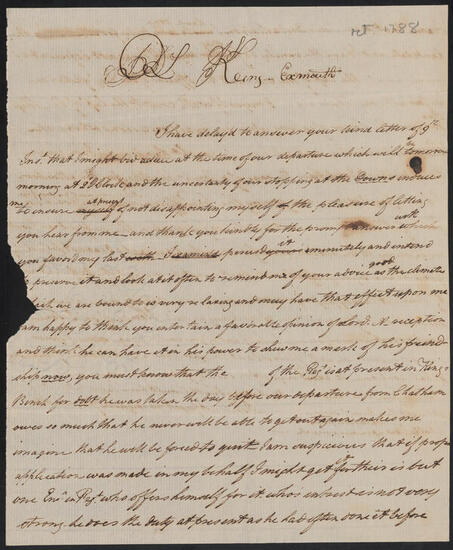 Oct 1788
King Exmouth
I have delay'd to answer your kind letter of 9th
Inst that I might bid adieu at the time of our departure which will be tomorrow
morning at O'Clock and the uncertainty of our stopping at the Downs induces
me to ensure myself of not disappointing myself of the pleasure of letting
you hear from me and thank you kindly for the prompt answer with which
you favor'd my last I perused it minutely and intend
to preserve it and look at it often to remind me of your good advice as the climate
which we are bound to is very relaxing and may have that effect upon me
am happy to think you entertain a favorable opinion of Lord N. reception
and think he can have it in his power to shew me a mark of his friend-
ship now, you must know that the of the Regt is at present in Kings
Bench for debt he was taken the day before our departure from Chatham
owes so much that he never will be able to get out again makes me
imagine that he will be forced to quit I am suspicious that if proper
application was made in my behalf I might get it for there is but
one Ensn in Regt who offers himself for it whose intrest is not very
strong he does the duty at present as he had often done it before